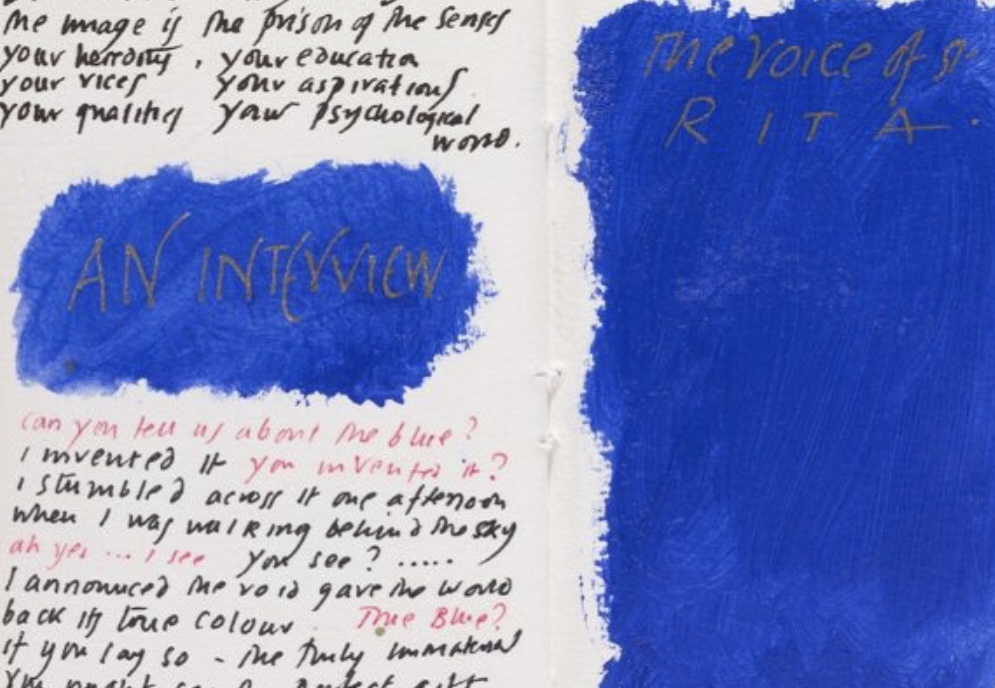 the image is the prison of the senses
your heredity, your education
your vices your aspirations
your qualities your psychological
world.
AN INTERVIEW
can you tell us about the blue?
I invented it you invented it?
I stumbled across it one afternoon
when I was walking behind the sky
ah yes ... I see you see? .....
I announced the void gave the world
back its true colour. True Blue?
if you say so - the truly immaterial
The voice of St.
RITA.